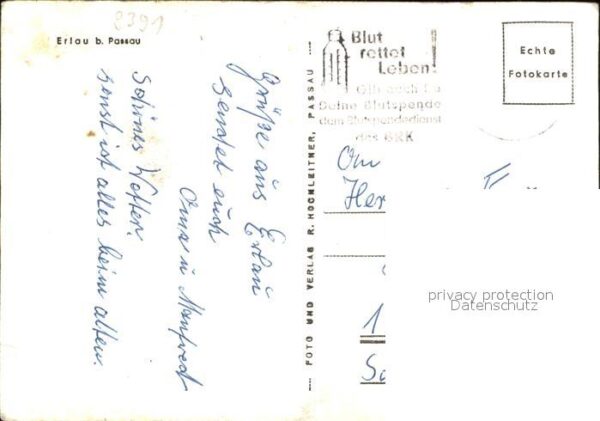 2391
Erlau b. Passau
Grüße aus Erlau
sendet euch
Oma u Manfred
Schönes Wetter.
sonst ist alles beim alten.
FOTO UND VERLAG R. HOCHLEITNER, PASSAU
Blut
rettet
Leben!
Gib auch Du
Deine Blutspende
dem Blutspendedienst
des BRK
Echte
Fotokarte
Her
1
privacy protection
Datenschutz